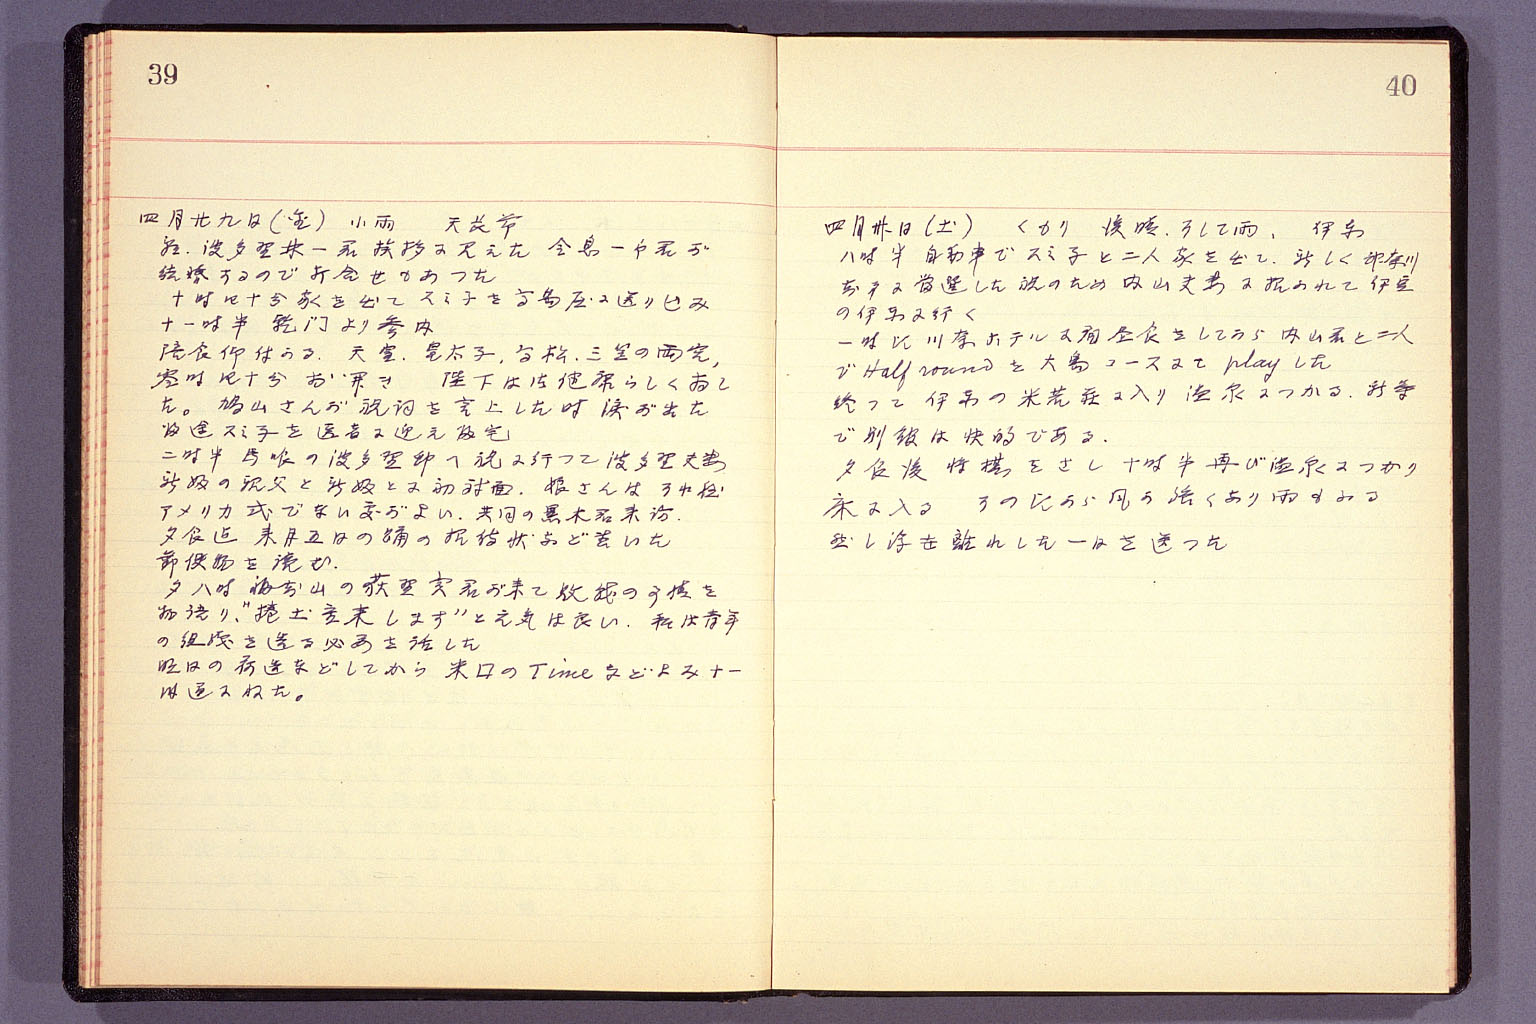 39
四月廿九日(金) 小雨 天長節
朝、波多野林一君挨拶に見えた
結婚するので打合せもあつた
十時四十分家を出て スミ子を高島屋に送り込み
十一時半 乾門より参内
陪食仰付らる、天皇、皇太子、高松、三笠の両宮、
零時四十分 お開き 陛下は御健康らしく
た。鳩山さんが祝詞を言上した時 涙が出た
帰途スミ子を医者に迎え帰宅
二時半 の波多野邸へ祝に行つて 波多野夫妻
新婦の親父と新婦とに初対面、娘さんは
アメリカ式でない事がよい、共同の黒木君来訪、
夕食迄 来月五日の の招待状など書いた
郵便物を読む、
夕八時 の荻野 君が来て 敗戦の事情を
物語り、"捲土重来します"と元気は良い、私は青年
の組織を造る必要を話した
明日の荷造などしてから 米国のTimeなどよみ十一
時過にねた。
40
四月卅日(土) くもり 後晴、そして雨、 伊東
八時半 自動車でスミ子と二人家を出て、新しく神奈川
に当選した祝のため 内山夫妻に招かれて伊豆
の伊東に行く
一時比 川奈ホテルに着 昼食をしてから 内山君と二人
でHalf roundを大島コースにてplayした
終つて 伊東の 荘に入り 温泉につかる、新
で 快的である、
夕食後 将棋をさし 十時半再び温泉につかり
床に入る その比から風が強くあり雨もふる
然し浮世離れした一日を送つた